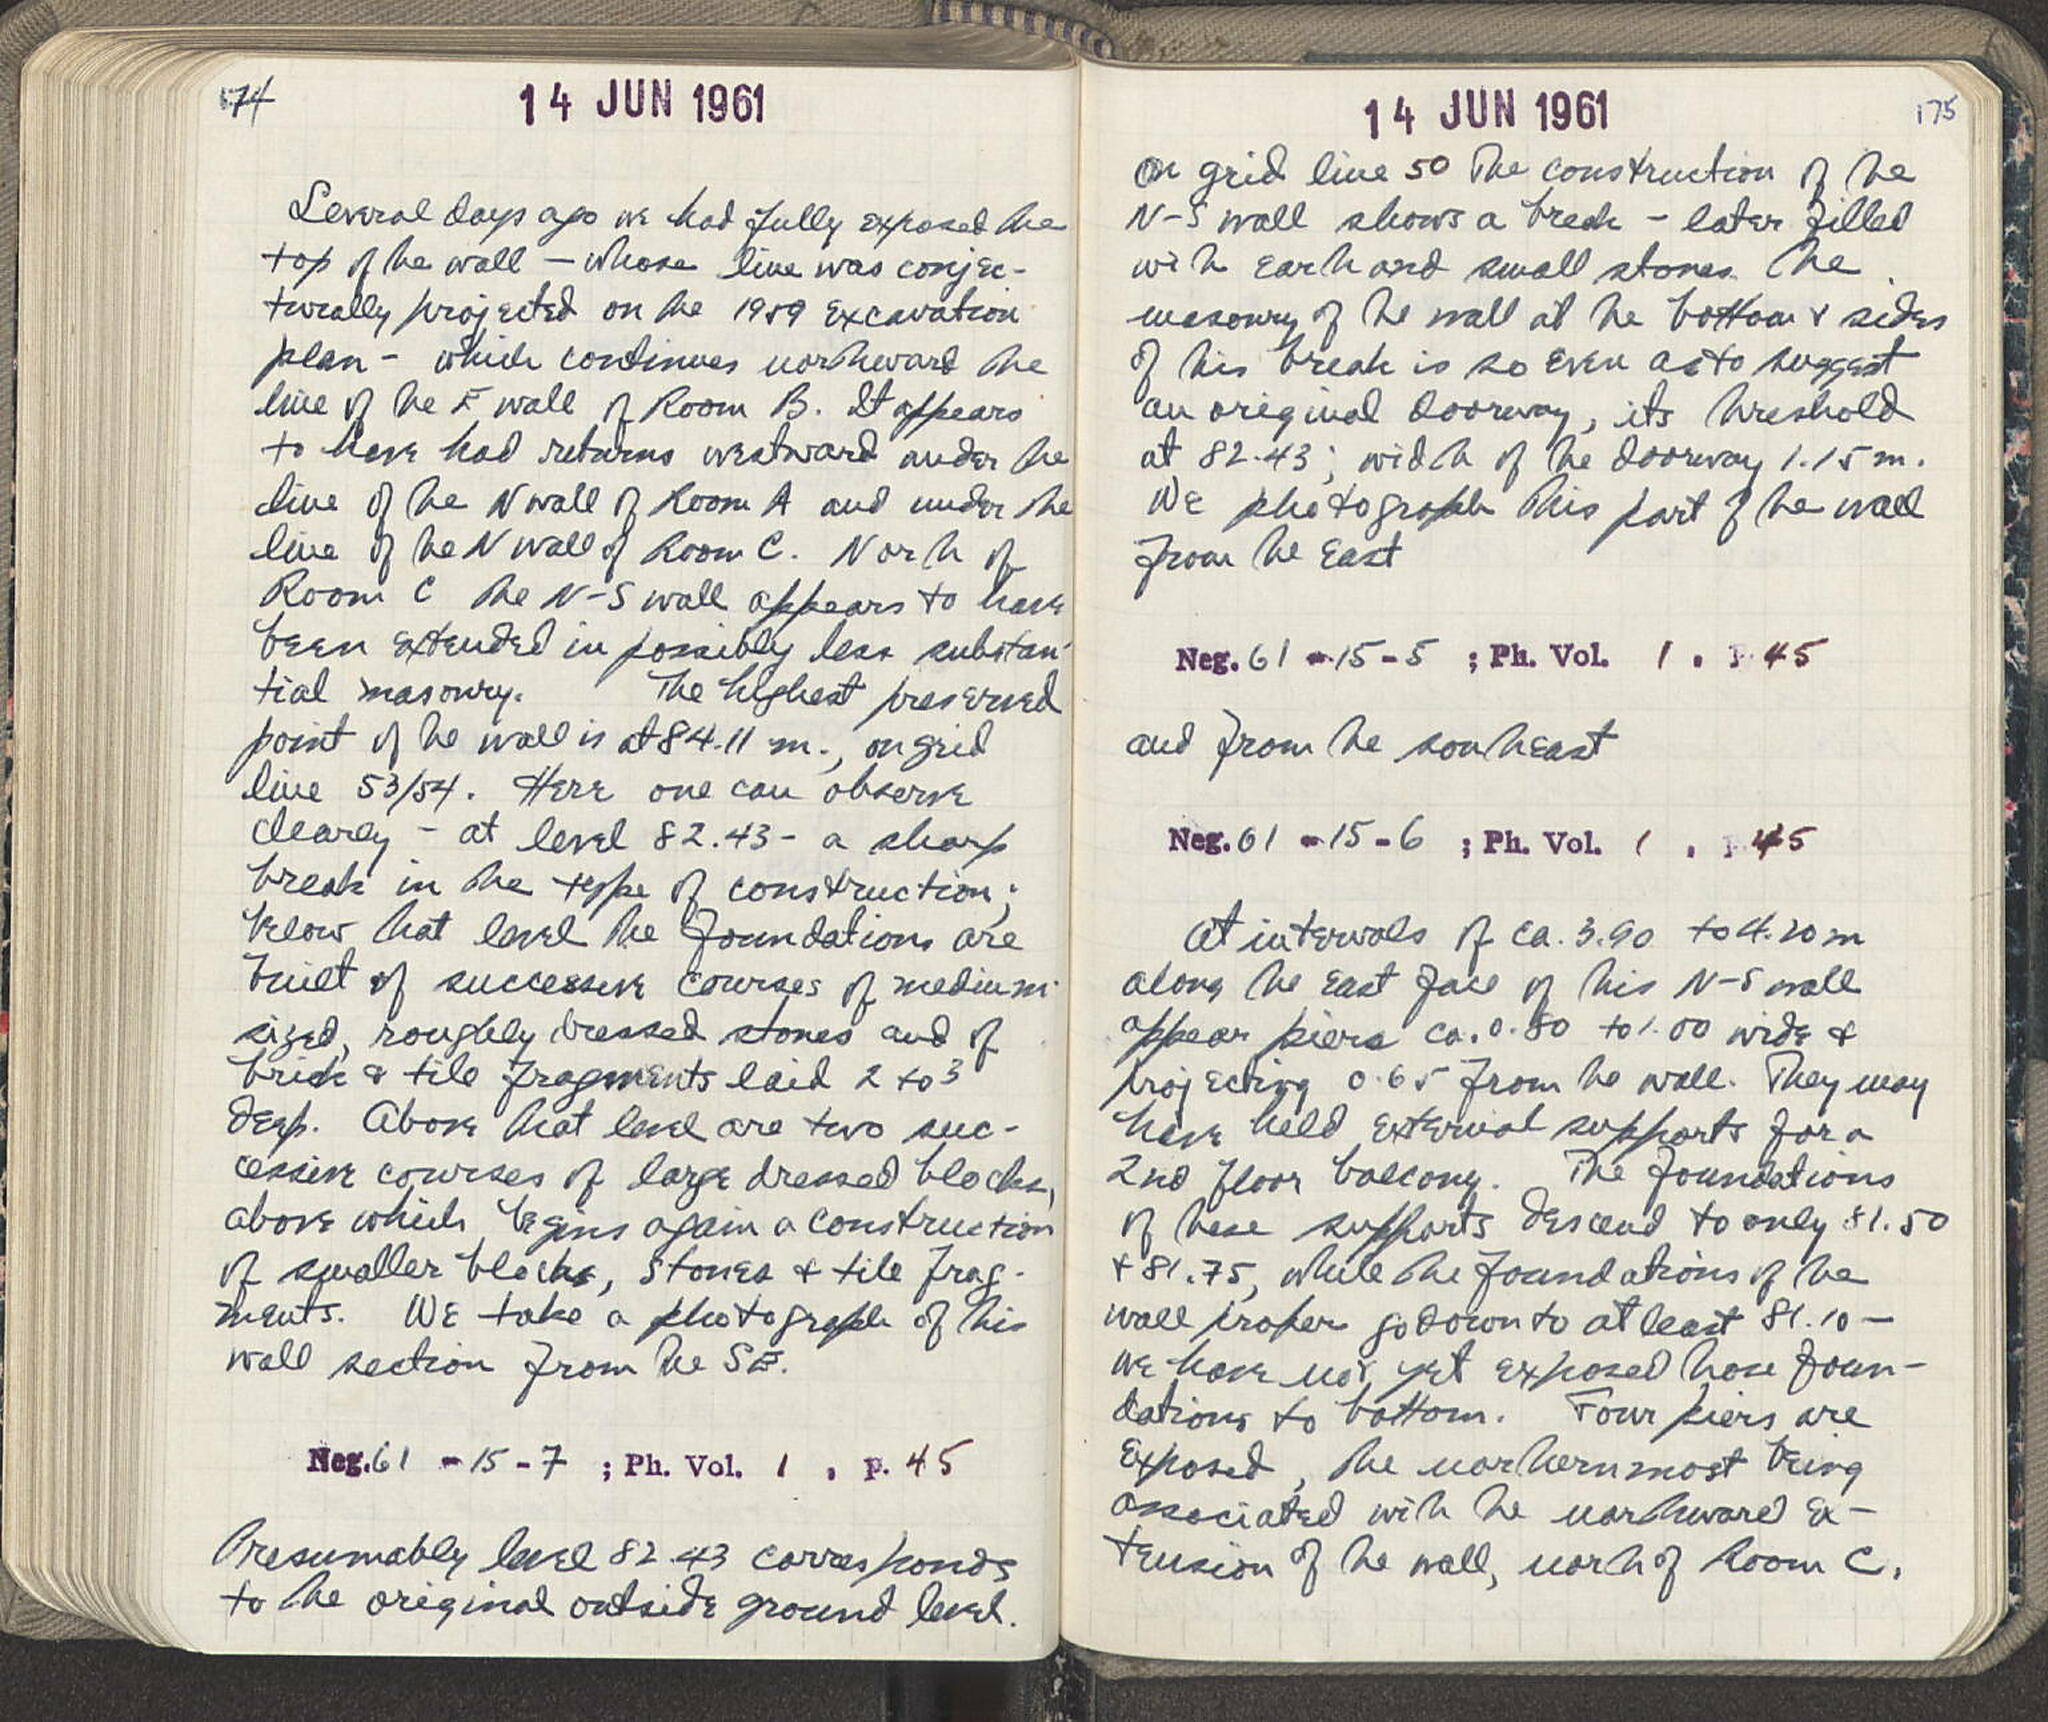 174
14 JUN 1961
Several days ago we had fully exposed the
top of the wall – whose line was conjec-
turally projected on the 1959 excavation
plan – which continues northward the
line of the E wall of Room B. It appears
to have had returns westward under the
line of the N wall of Room A and under the
line of the N wall of Room C. North of
Room C the N-S wall appears to have
been extended in possibly less substan-
tial masonry. The highest preserved
point of the wall is at 84.11 m., on grid
line 53/54. Here one can observe
clearly – at level 82.43 – a sharp
break in the type of construction;
below that level the foundations are
built of successive courses of medium-
sized, roughly dressed stones and of
brick & tile fragments laid 2 to 3
deep. Above that level are two suc-
cessive courses of large dressed blocks,
above which begins again a construction
of smaller blocks, stones & tile frag-
ments. We take a photograph of this
wall section from the SE.
Neg. 61 - 15 - 7 ; Ph. Vol. 1 , p. 45
Presumably level 82.43 corresponds
to the original outside ground level.
14 JUN 1961
175
On grid line 50 the construction of the
N-S wall shows a break – later filled
with earth and small stones. The
masonry of the wall at the bottom & sides
of this break is so even as to suggest
an original doorway, its threshold
at 82.43; width of the doorway 1.15 m.
We photograph this part of the wall
from the East
Neg. 61 - 15 - 5 ; Ph. Vol. 1 , p. 45
and from the southeast
Neg. 61 - 15 - 6 ; Ph. Vol. 1 , p. 45
At intervals of ca. 3.90 to 4.20 m
along the East face of this N-S wall
appear piers ca. 0.80 to 1.00 wide &
projecting 0.65 from the wall. They may
have held external supports for a
2nd floor balcony. The foundations
of these supports descend to only 81.50
& 81.75, while the foundations of the
wall proper go down to at least 81.10 –
we have not yet exposed those foun-
dations to bottom. Four piers are
exposed, the northernmost being
associated with the northward ex-
tension of the wall, north of Room C.